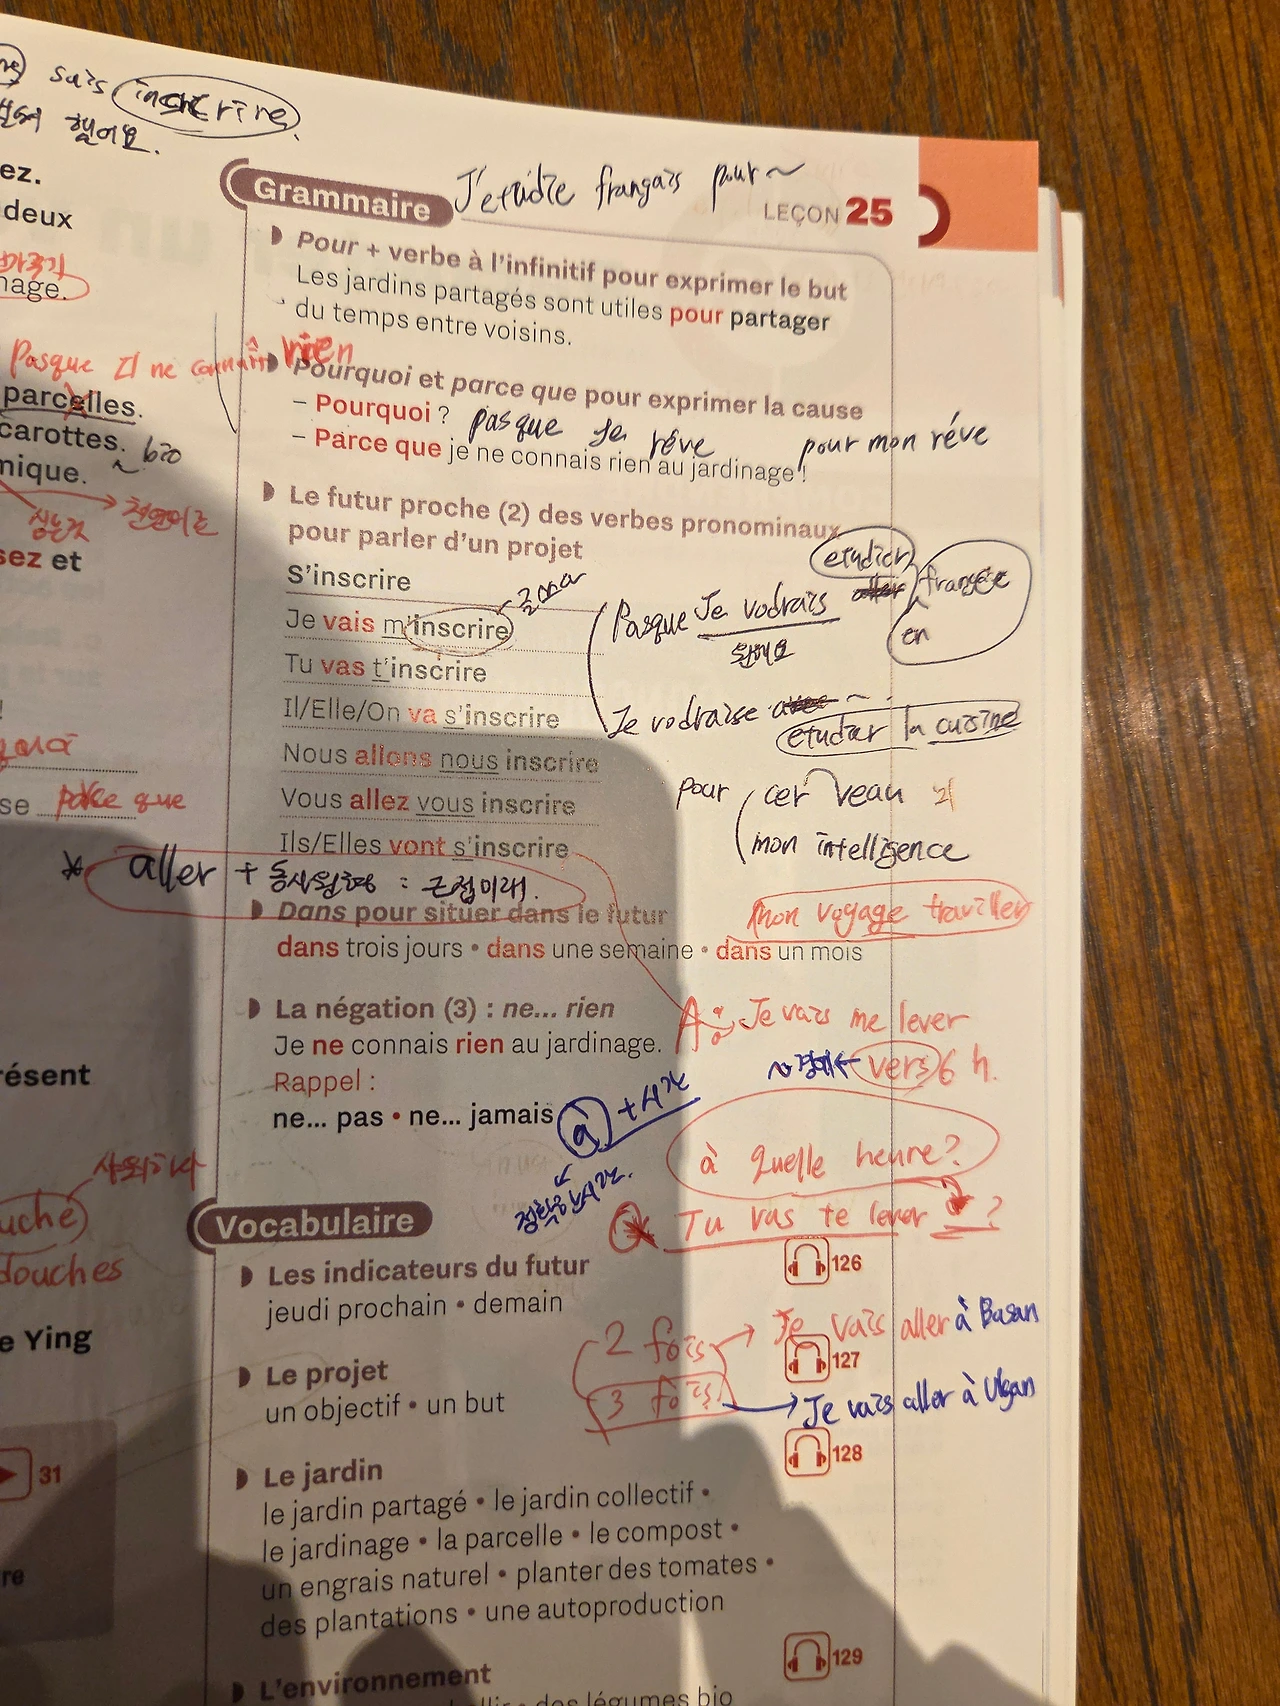 sais inscrire
했어요.
ez.
deux
nage.
Pasque Il ne connaît rien
parcelles.
carottes. bio
mique.
천연비료
심는것
sez et
!
se parce que
ésent
uche
douches
e Ying
31
re
Grammaire
J'etudie français pour ~
LEÇON 25
Pour + verbe à l'infinitif pour exprimer le but
Les jardins partagés sont utiles pour partager
du temps entre voisins.
Pourquoi et parce que pour exprimer la cause
– Pourquoi ? pasque Je rêve pour mon réve
– Parce que je ne connais rien au jardinage !
Le futur proche (2) des verbes pronominaux
pour parler d'un projet
S'inscrire
Je vais m'inscrire
Tu vas t'inscrire
Il/Elle/On va s'inscrire
Nous allons nous inscrire
Vous allez vous inscrire
Ils/Elles vont s'inscrire
etudier
Pasque Je vodrais
원해요
en
Je vodraise ~
etudier la cuisine
pour cerveau
mon intelligence
* aller + 동사원형 : 근접미래.
Dans pour situer dans le futur
mon voyage traviller
dans trois jours • dans une semaine • dans un mois
La négation (3) : ne... rien
Je ne connais rien au jardinage.
Rappel :
ne... pas • ne... jamais
A: Je vais me lever
vers 6 h.
à + 시간
정확한 시간.
à quelle heure?
Q Tu vas te lever ?
Vocabulaire
126
Les indicateurs du futur
jeudi prochain • demain
2 fois → Je vais aller à Busan
127
Le projet
un objectif • un but
3 fois → Je vais aller à Ulsan
128
Le jardin
le jardin partagé • le jardin collectif •
le jardinage • la parcelle • le compost •
un engrais naturel • planter des tomates •
des plantations • une autoproduction
129
L'environnement
des légumes bio